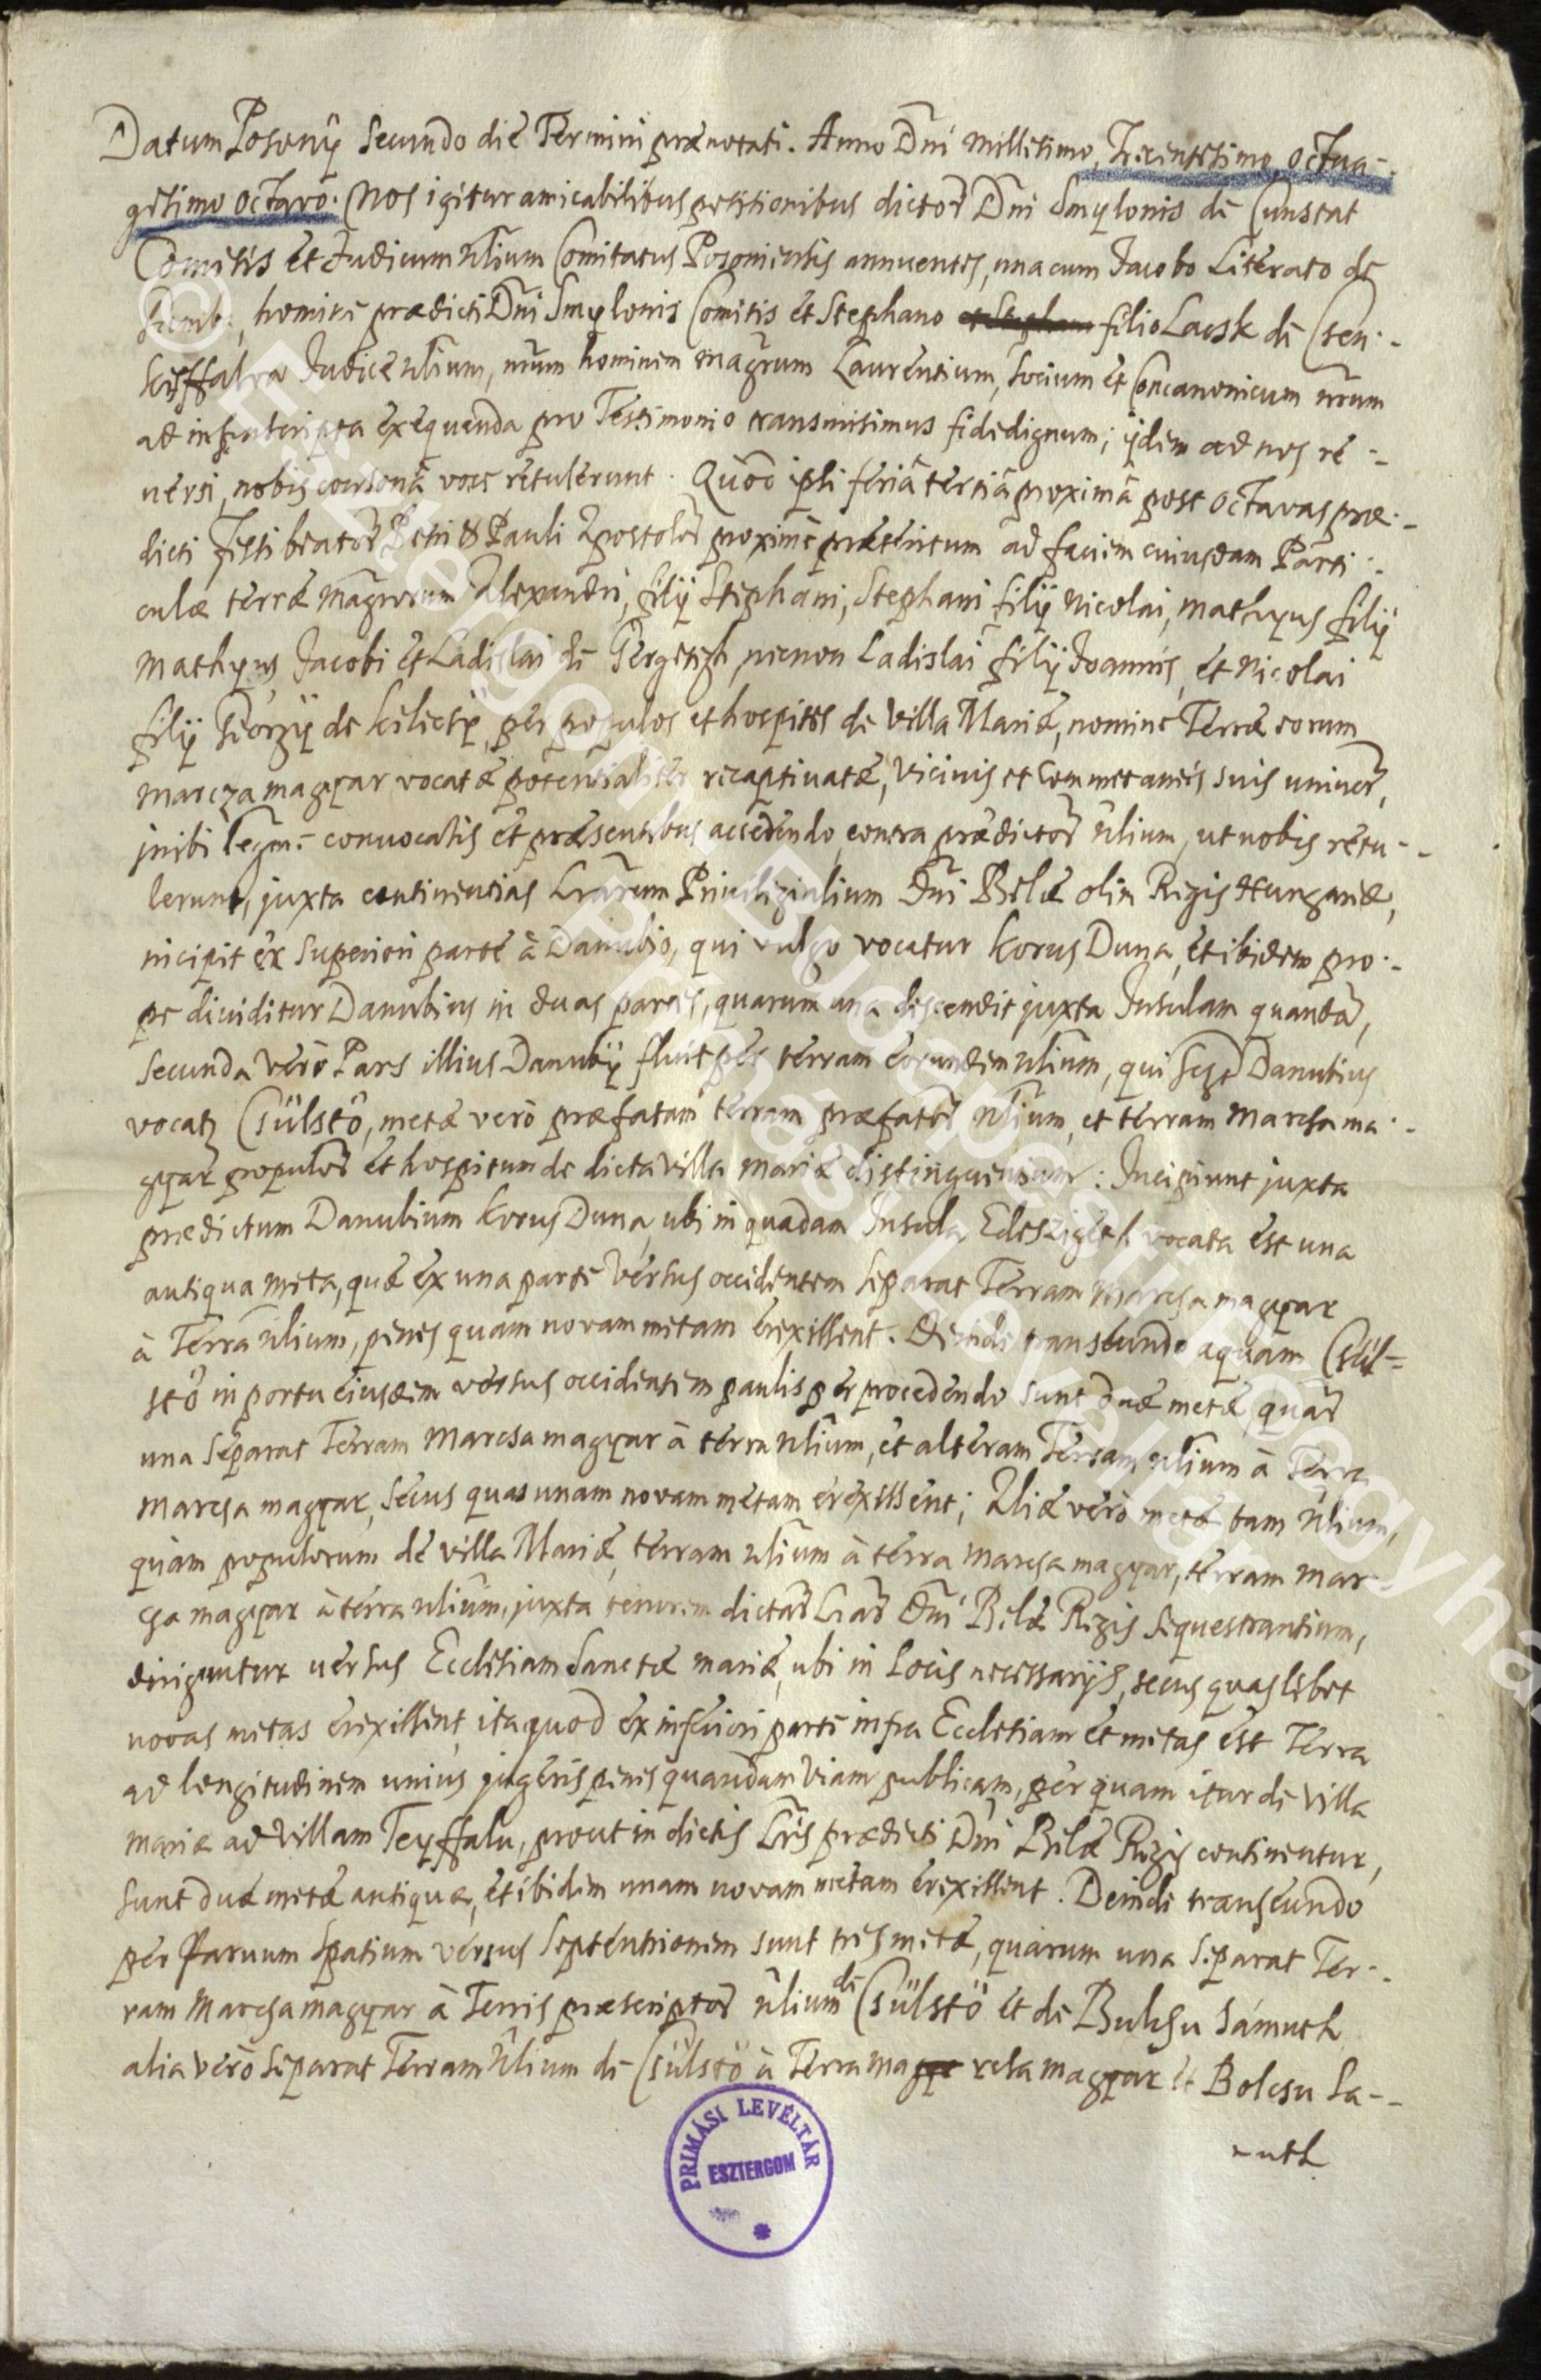 Datum Posonÿ Secundo die Termini prænotati. Anno Dni Millesimo, Trecentesimo, Octua-
gesimo octavo. Nos igitur amicabilibus petitionibus dictor Dni Smÿlonis de Cunstat
Comitis et Judicum Nlium Comitatus Posoniensis annuentes, una cum Jacobo Literato de
homine prædicti Dni Smÿlonis Comitis et Stephano filio Lacsk de Csen-
keÿffalva Judice Nlium, nrum hominem Magrum Laurentium, Socium et Concanonicum nrum
ad infrascripta exequenda pro Testimonio transmisimus fidedignum; ÿdem ad nos re-
uersi, nobis consona voce retulerunt. Quod ipsi feriâ tertiâ proximâ post octavas præ-
dicti Festi beator Petri & Pauli Apostolor proxime præteritum ad faciem cuiusdam Parti-
culæ terræ Magrorum Alexandri, filÿ Stephani, Stephani filÿ Nicolai, Mathÿus filÿ
Mathÿus Jacobi et Ladislai de Pergetzh, necnon Ladislai filÿ Joannis, et Nicolai
filÿ Georgÿ de Kelietÿ, per populos et hospites de Villa Mariæ, nomine Terræ eorum
Marcza magÿar vocatæ potentialiter recaptivatæ, Vicinis et Commetaneis suis univer,
inibi legme convocatis et præsentibus accedendo, contra prædictor Nlium, ut nobis retu-
lerunt, juxta continentias Lrarum Privilegialium Dni Belæ olim Regis Hungariæ,
incipit ex Superiori parte à Danubio, qui vulgo vocatur Korus Duna, et ibidem pro-
pe dividitur Danubius in duas partes, quarum una descendit juxta Insulam quandã,
Secunda verò Pars illius Danubÿ fluit per terram eorundem Nlium, qui Danubius
vocat Csülstö, metæ verò præfatam terram præfator Nlium, et terram Marcsa ma-
gÿar populor et hospitum de dicta villa Mariæ distinguentium: Incipiunt juxta
prædictum Danubium Korus Duna, ubi in quadam Insula Edeszigeth vocata est una
antiqua meta, quæ ex una parte Versus occidentem Separat Terram Marcsa magÿar
à Terra Nlium, penes quam novam metam erexissent. Deinde transeundo aquam Csül-
stö in portu eiusdem versus occidentem paulisper procedendo sunt duæ metæ, quar
una Separat Terram Marcsa magÿar à terra Nlium, et alteram Terram Nlium à Terra
Marcsa magÿar, Secus quas unam novam metam erexissent; Aliæ verò metæ tam Nlium,
quàm populorum de villa Mariæ, terram Nlium à terra Marcsa magÿar, terram Mar-
csa magÿar à terra Nlium, juxta tenorem dictar Lrar Dni Belæ Regis Sequestrantium,
diriguntur versus Ecclesiam Sanctæ Mariæ, ubi in Locis necessarÿs, secus quaslibet
novas metas erexissent, ita quod ex inferiori parte infra Ecclesiam et metas est Terra
ad longitudinem unius jugeris penes quandam Viam publicam, per quam itur de Villa
Mariæ ad Villam Teÿffalu, prout in dictis Lris prædicti Dni Belæ Regis continentur,
Sunt duæ metæ antiquæ, et ibidem unam novam metam erexissent. Deinde transeundo
per Parvum Spatium versus Septentrionem sunt tres metæ, quarum una Separat Ter-
ram Marcsa magÿar à Terris præscriptor Nlium de Csülstö et de Bulchu Sámuth
alia verò Separat Terram Nlium de Csülstö à Terra Ma rcsa magÿar et Bolcsu Sa-
-uth
PRIMÁSI LEVÉLTÁR
ESZTERGOM